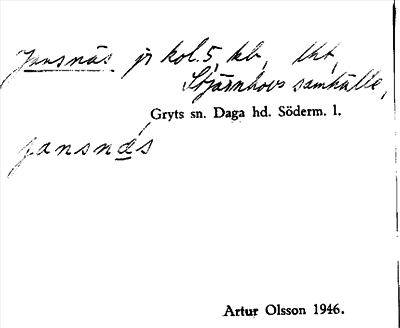 Jansnäs jr kol. 5, kb, lht,
Stjärnhovs samhälle,
Gryts sn. Daga hd. Söderm. l.
jansnæs
Artur Olsson 1946.